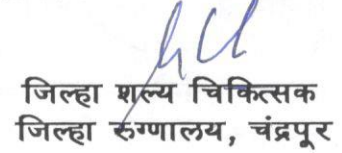 जिल्हा शल्य चिकित्सक
जिल्हा रुग्णालय, चंद्रपूर